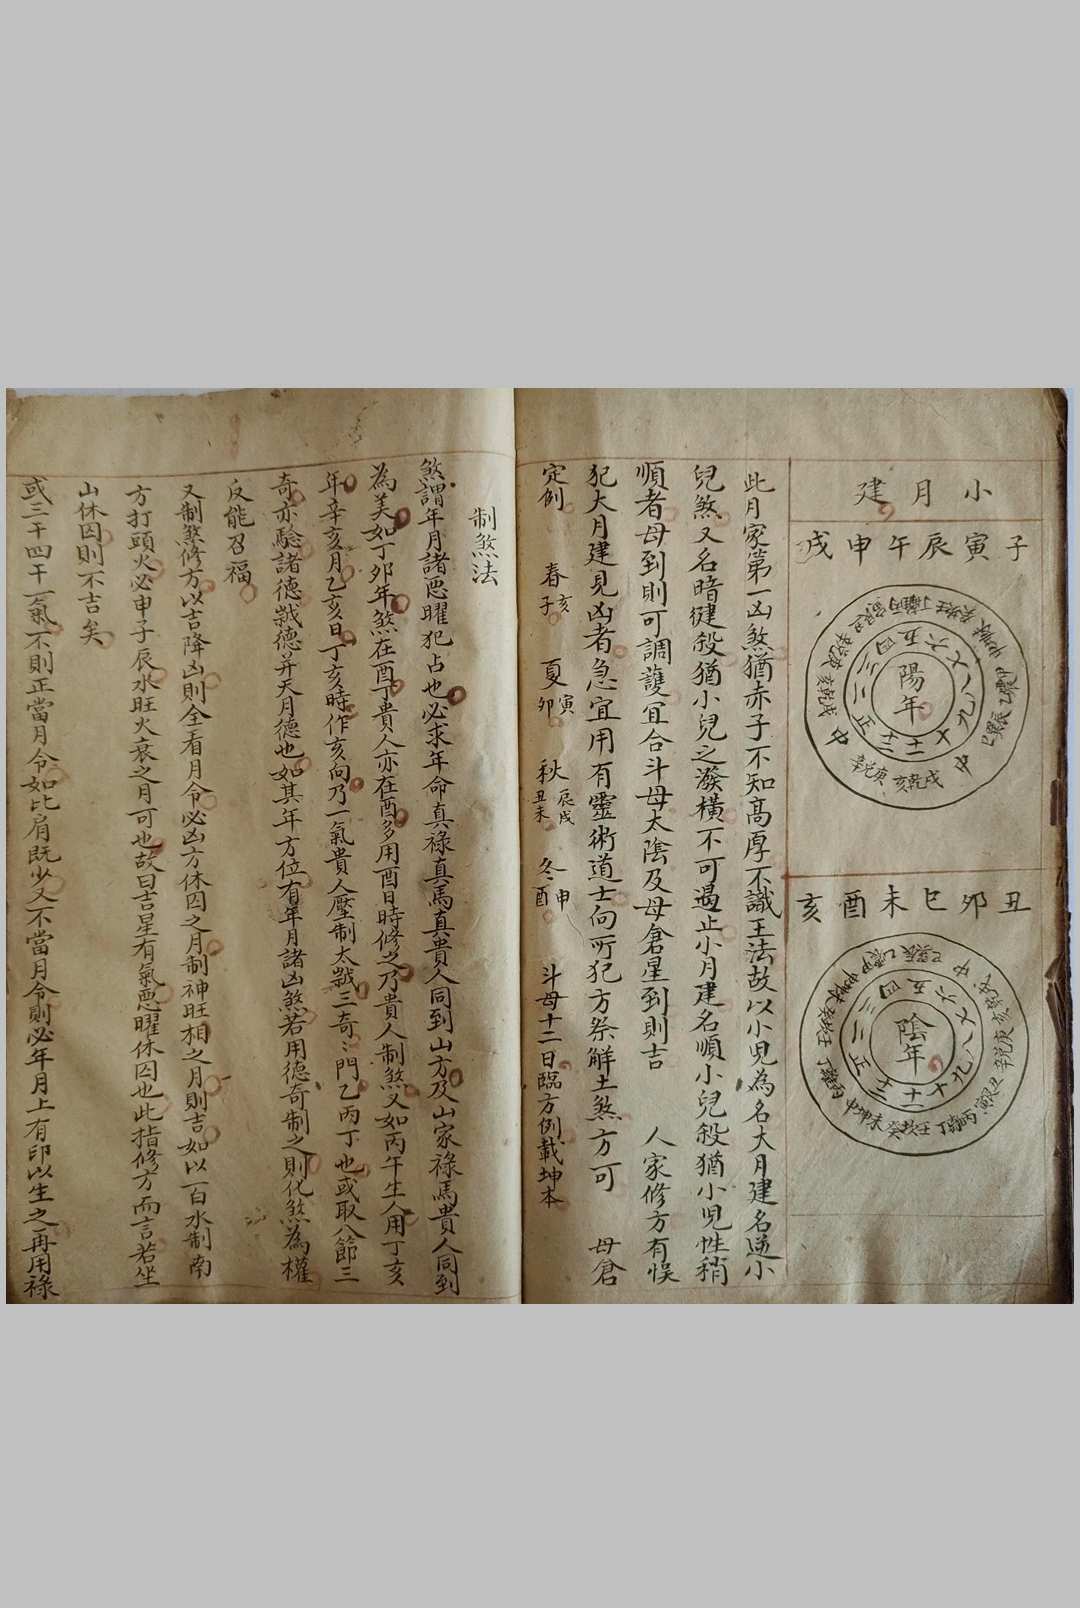 小月建
子寅辰午申戌
陽年
正二三四五六七八九十十一十二
中
丑卯巳未酉亥
陰年
正二三四五六七八九十十一十二
中
此月家第一凶煞猶赤子不知高厚不識王法故以小児為名大月建名逆小
兒煞又名暗建殺猶小兒之潑橫不可遏止小月建名順小兒殺猶小児性稍
順者母到則可調護宜合斗母太陰及母倉星到則吉 人家修方有悞
犯大月建見凶者急宜用有靈術道士向所犯方祭解土煞方可 母倉
定例 春亥子 夏寅卯 秋辰戌丑未 冬申酉 斗母十二日臨方例載坤本
制煞法
煞謂年月諸悪曜犯占也必求年命真祿真馬真貴人同到山方及山家祿馬貴人同到
為美如丁卯年煞在酉丁貴人亦在酉多用酉日時修之乃貴人制煞又如丙午生人用丁亥
年辛亥月乙亥日丁亥時作亥向乃一氣貴人壓制太歲三奇三門乙丙丁也或取八節三
奇亦驗諸德歲德并天月德也如其年方位有年月諸凶煞若用德奇制之則化煞為權
反能召福
又制煞修方以吉降凶則全看月令必凶方休囚之月制神旺相之月則吉如以一白水制南
方打頭火必申子辰水旺火衰之月可也故曰吉星有氣悪曜休囚也此指修方而言若坐
山休囚則不吉矣
或三干四干一氣不則正當月令如比肩既少又不當月令則必年月上有印以生之再用祿